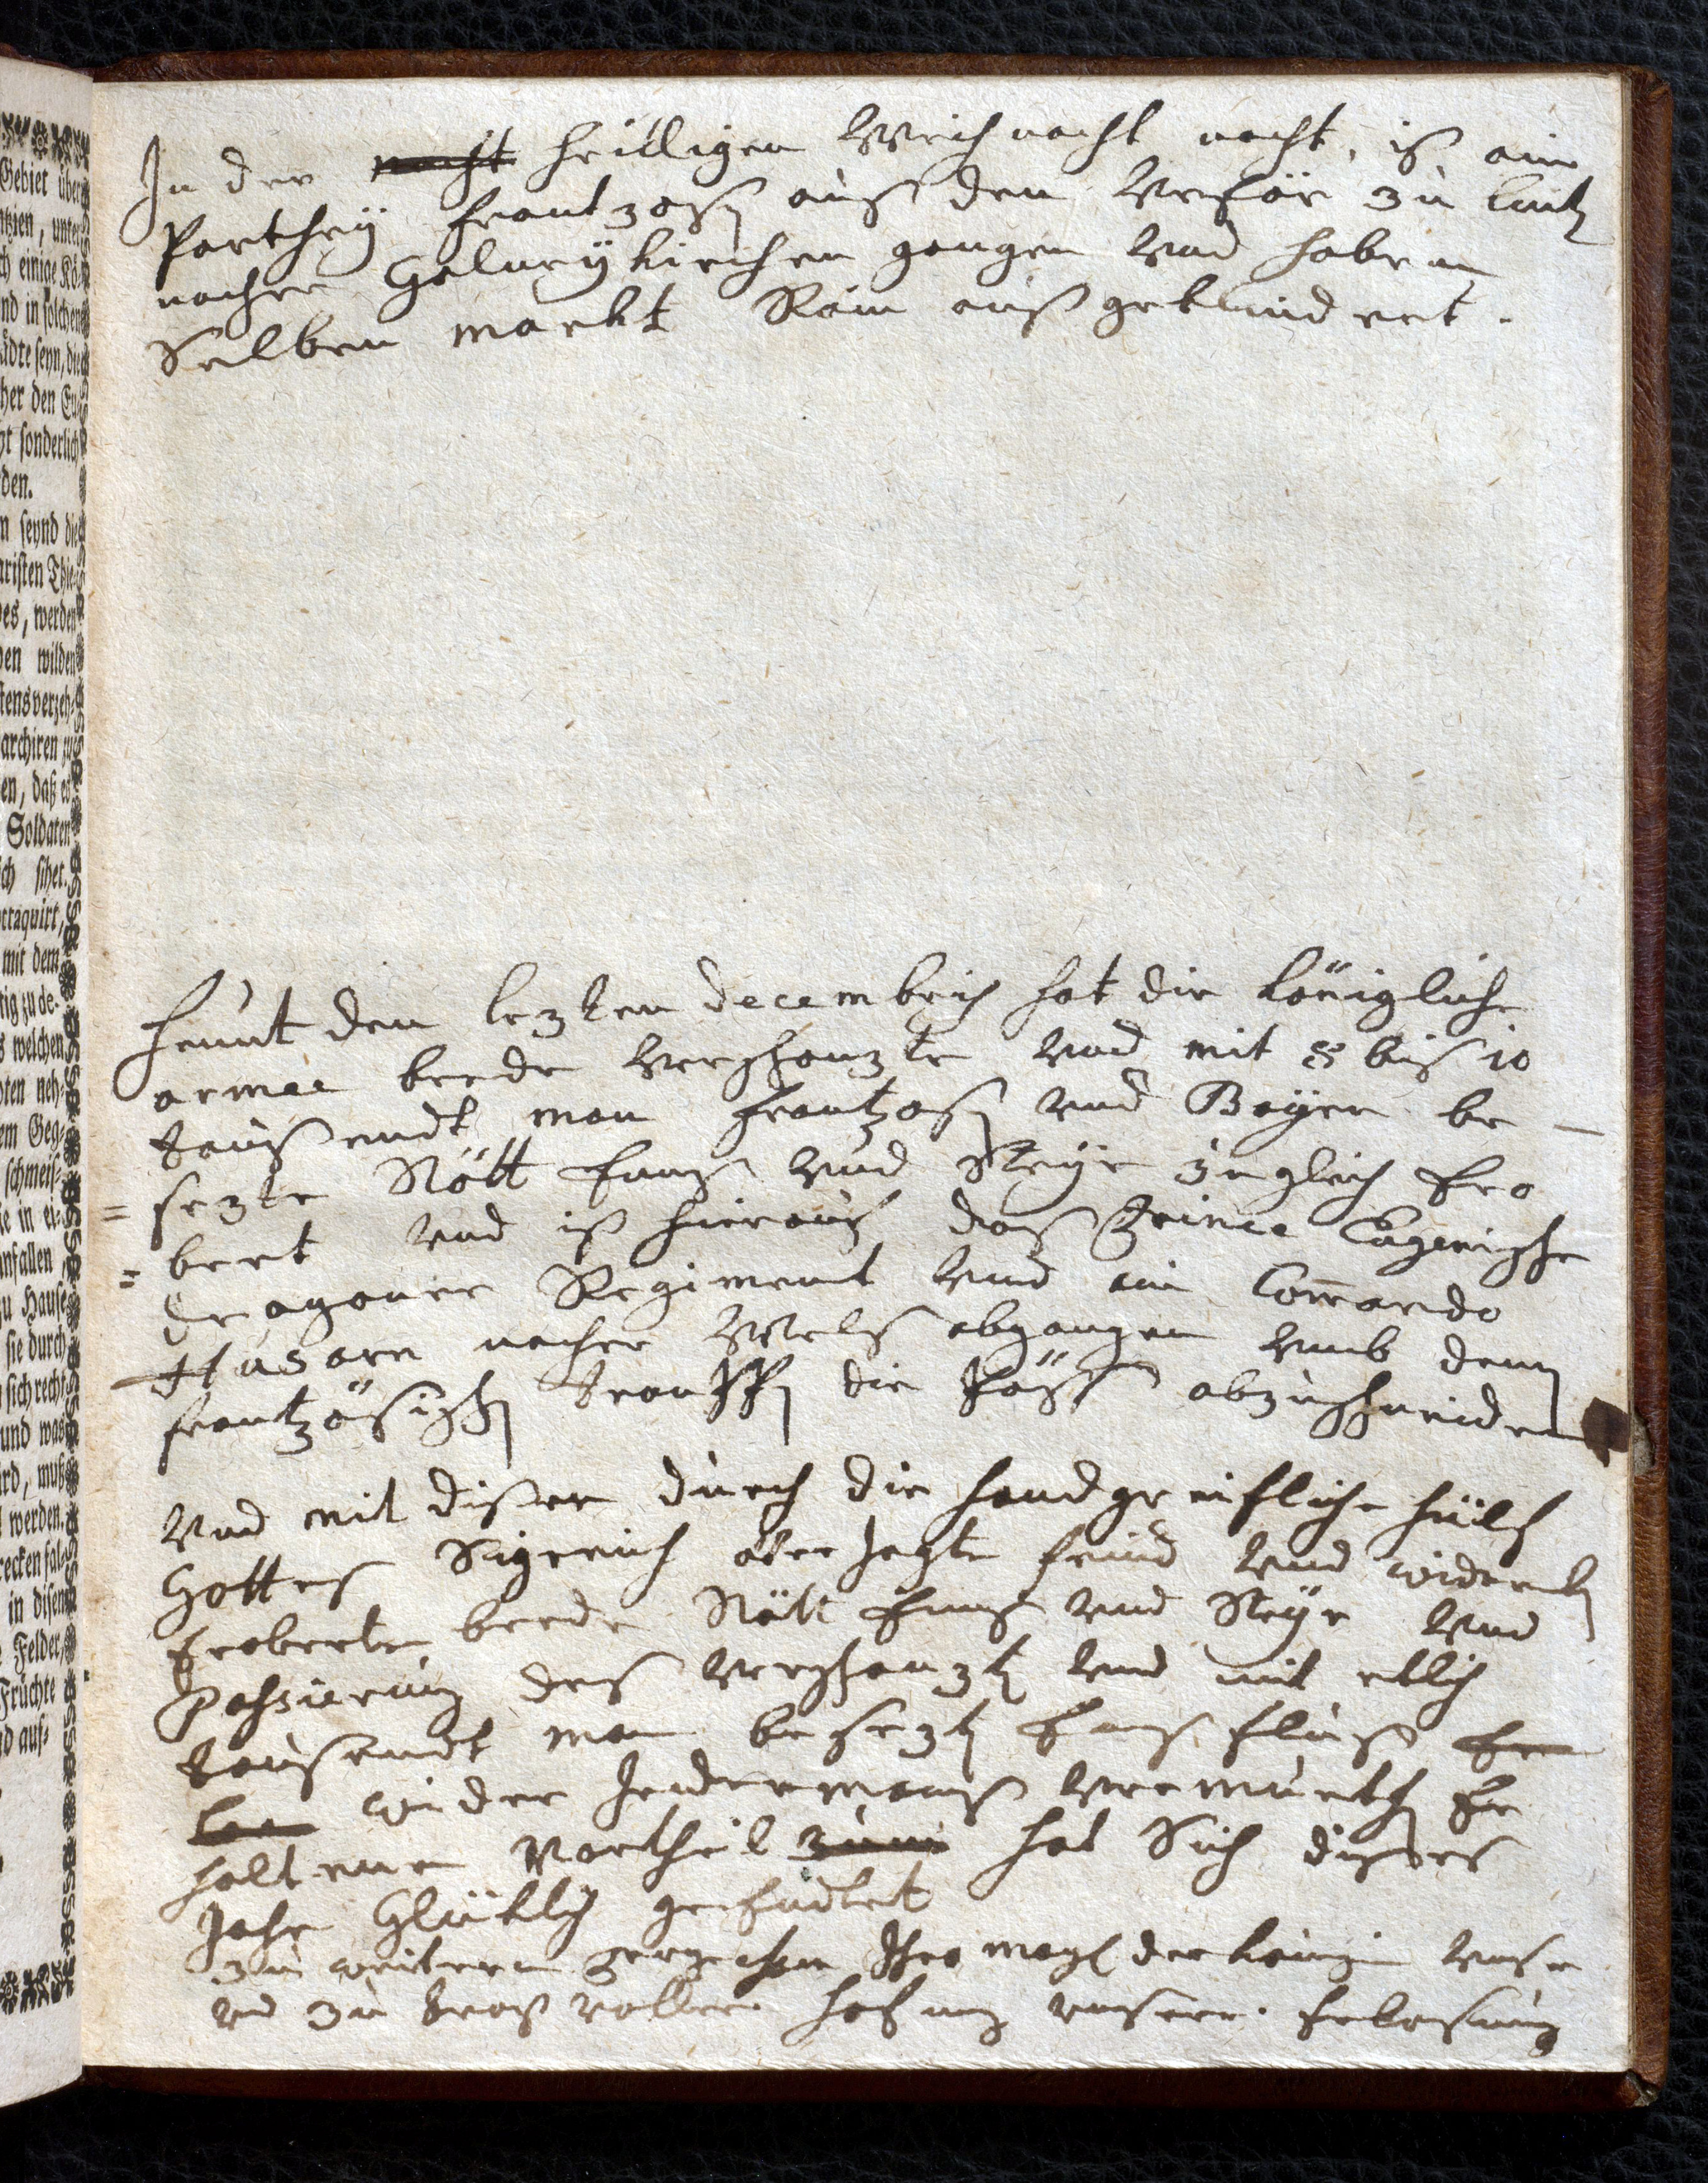 Gebiet über
tzien, unter
ch einige Kö-
nd in solchen
ädte seyn, die
her den Eu
ht sonderlich
den.
n seynd die
aristen Thie-
es, werden
en wilden
stens verzeh-
archiren
en, daß es
Soldaten
ich sihet.
ttaquirt,
mit dem
tig zu de-
s welchen
ten neh-
em Geg-
schmeis-
ie in ei-
nfallen
zu Hause
sie durch
sich recht
und was
ird, muß
werden.
ecken fal-
in disen
Felder,
Früchte
d auf-
In der nacht heilligen Weichnacht nacht, ist ein
Parthey frantzosen auß den Refier zu lintz
nacher Galneykirchen gangen vnd haben
Selben markt Rain auß geblindert.
heunt den lezten decembrich hat die königliche
armee beede verschanzte vnd mit 8 bis 10
taußendt man frantzosen vnd Bayern be
= sezte Stött Ennß vnd Steyr zugleich Ero
= bert vnd ist hierauf daß Prince Eugenische
dragoner Regiment vnd ein Commando
Husarn nacher Welß abgangen vmb denen
frantzösischen trouppen die Päss abzuschneiden
Vnd mit diser durch die handgreifliche hülf
Gottes Sigreich obersezte feind vnd widerumb
Eroberten beede Stätt Ennß vnd Steyr vnd
Pahsierung des verschanzten vnd mit etlich
tausendt man besezten Ennß flus
wider Jedermans vermuethen Er
haltenen Vortheil zum hat Sich dises
Jahr Glüklich geEndtet
zu weitern Ihro mayt der königin vnser
vnd zu trostvoller hofnung vnserer Erlesung